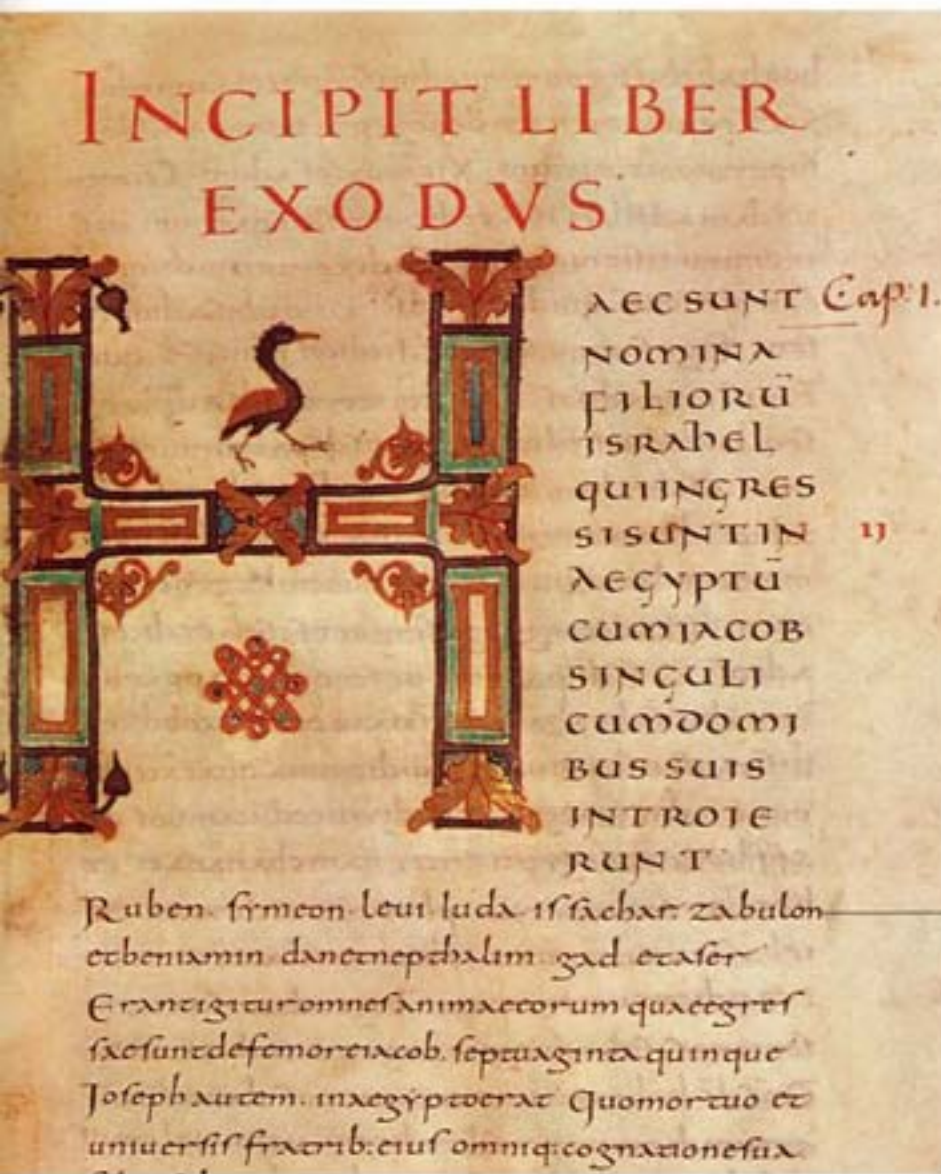 INCIPIT LIBER
EXODVS
HAEC SUNT Cap. 1.
NOMINA
FILIORŪ
ISRAhEL
QUI INGRES
SI SUNT IN IJ
AEGYPTŪ
CUM IACOB
SINGULI
CUM DOMI
BUS SUIS
INTROIE
RUNT
Ruben. symeon. leui. iuda. issachar. zabulon
et beniamin. dan et nepthalim. gad et aser
Erant igitur omnes animae eorum quae egres
sae sunt de femore iacob. septuaginta quinque
Ioseph autem. in aegypto erat. Quo mortuo et
uniuersis fratrib: eius omniq: cognatione sua